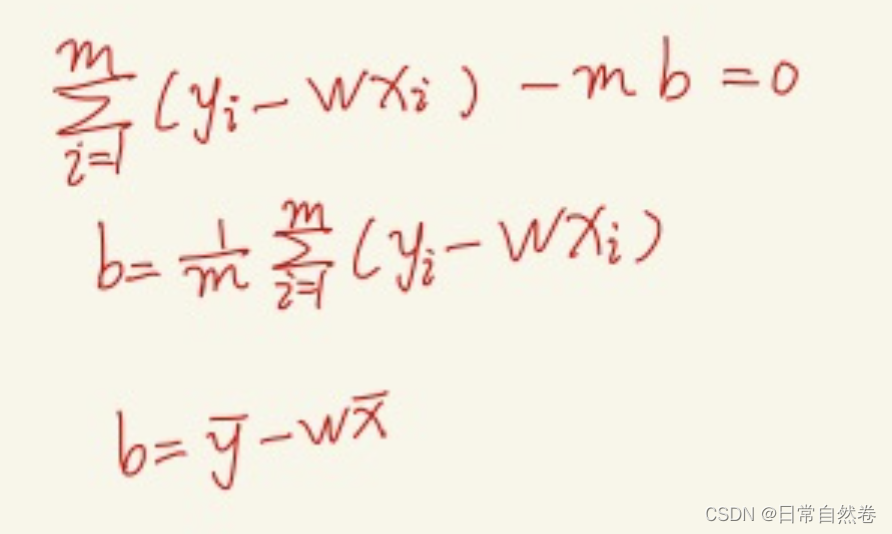 $\sum_{i=1}^{m} (y_i - wx_i) - mb = 0$
$b = \frac{1}{m} \sum_{i=1}^{m} (y_i - wx_i)$
$b = \bar{y} - w\bar{x}$
CSDN @日常自然卷